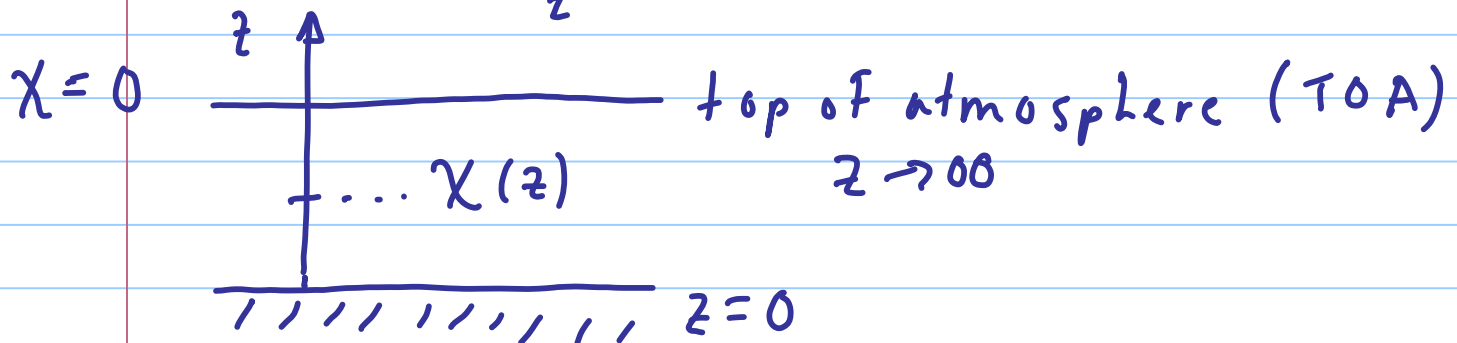 z
z
χ = 0
top of atmosphere (TOA)
z → ∞
.... χ(z)
z = 0